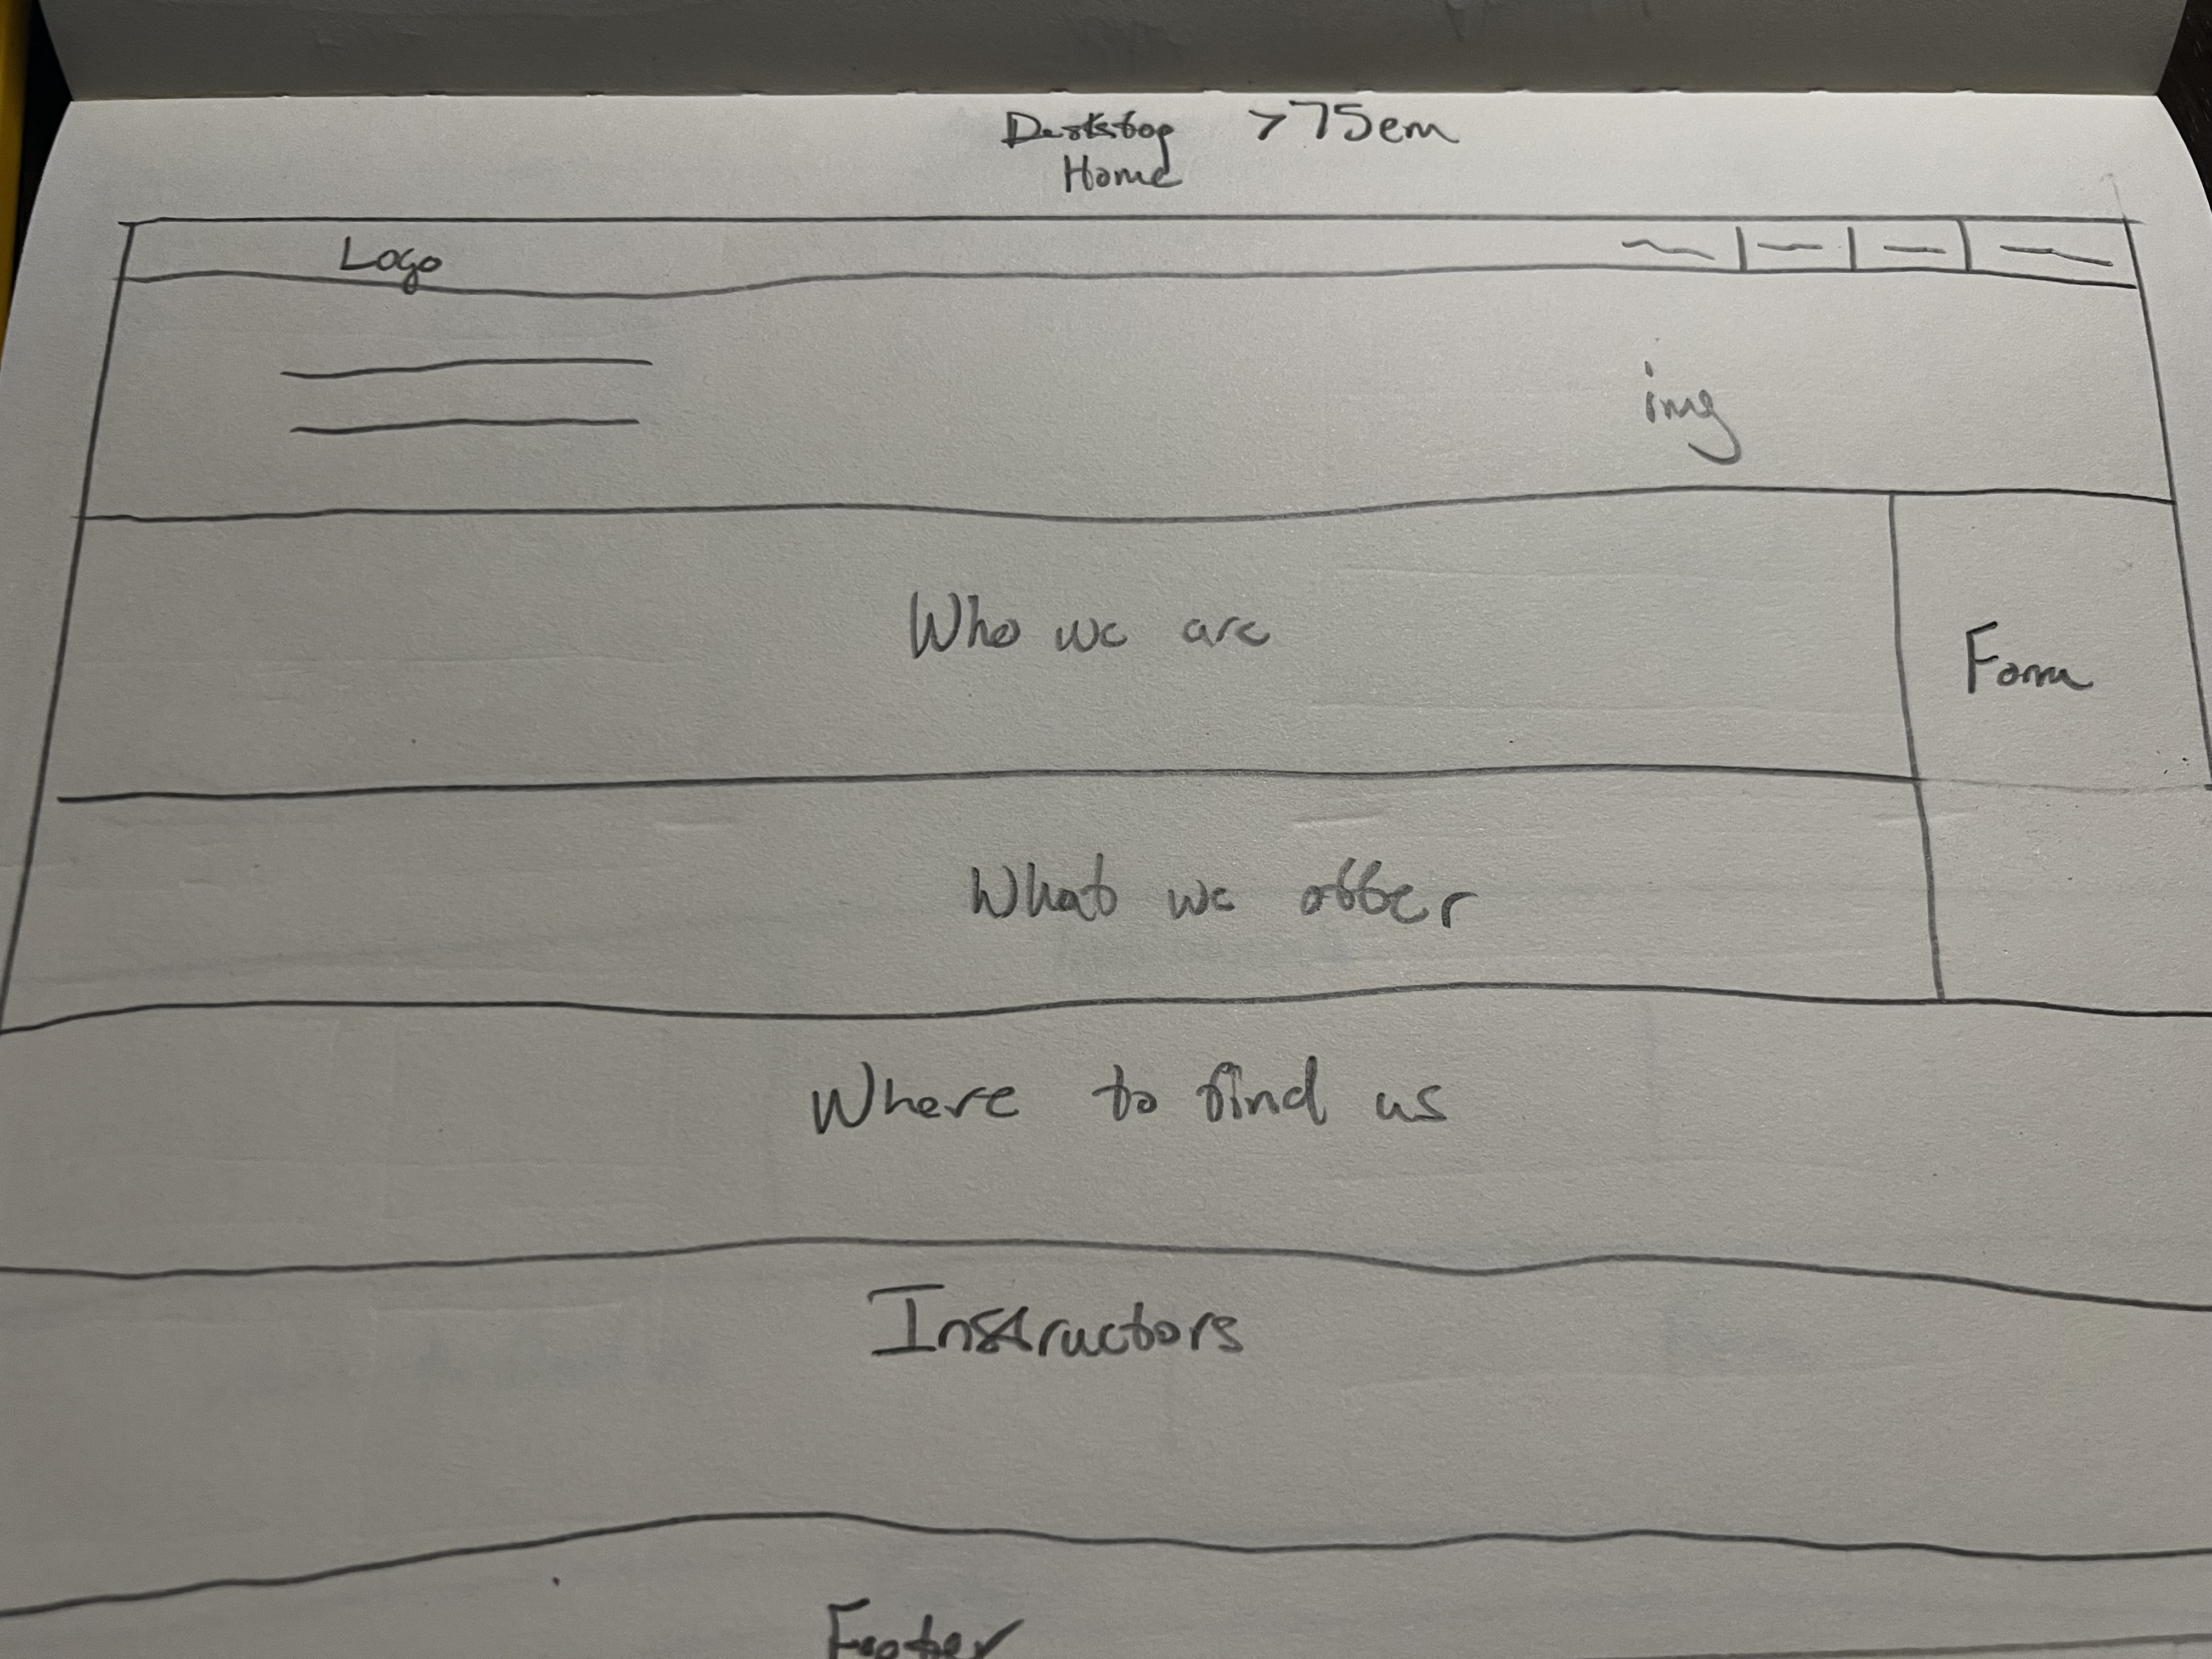 Desktop >75em
Home
Logo
img
Who we are
Form
What we offer
Where to find us
Instructors
Footer